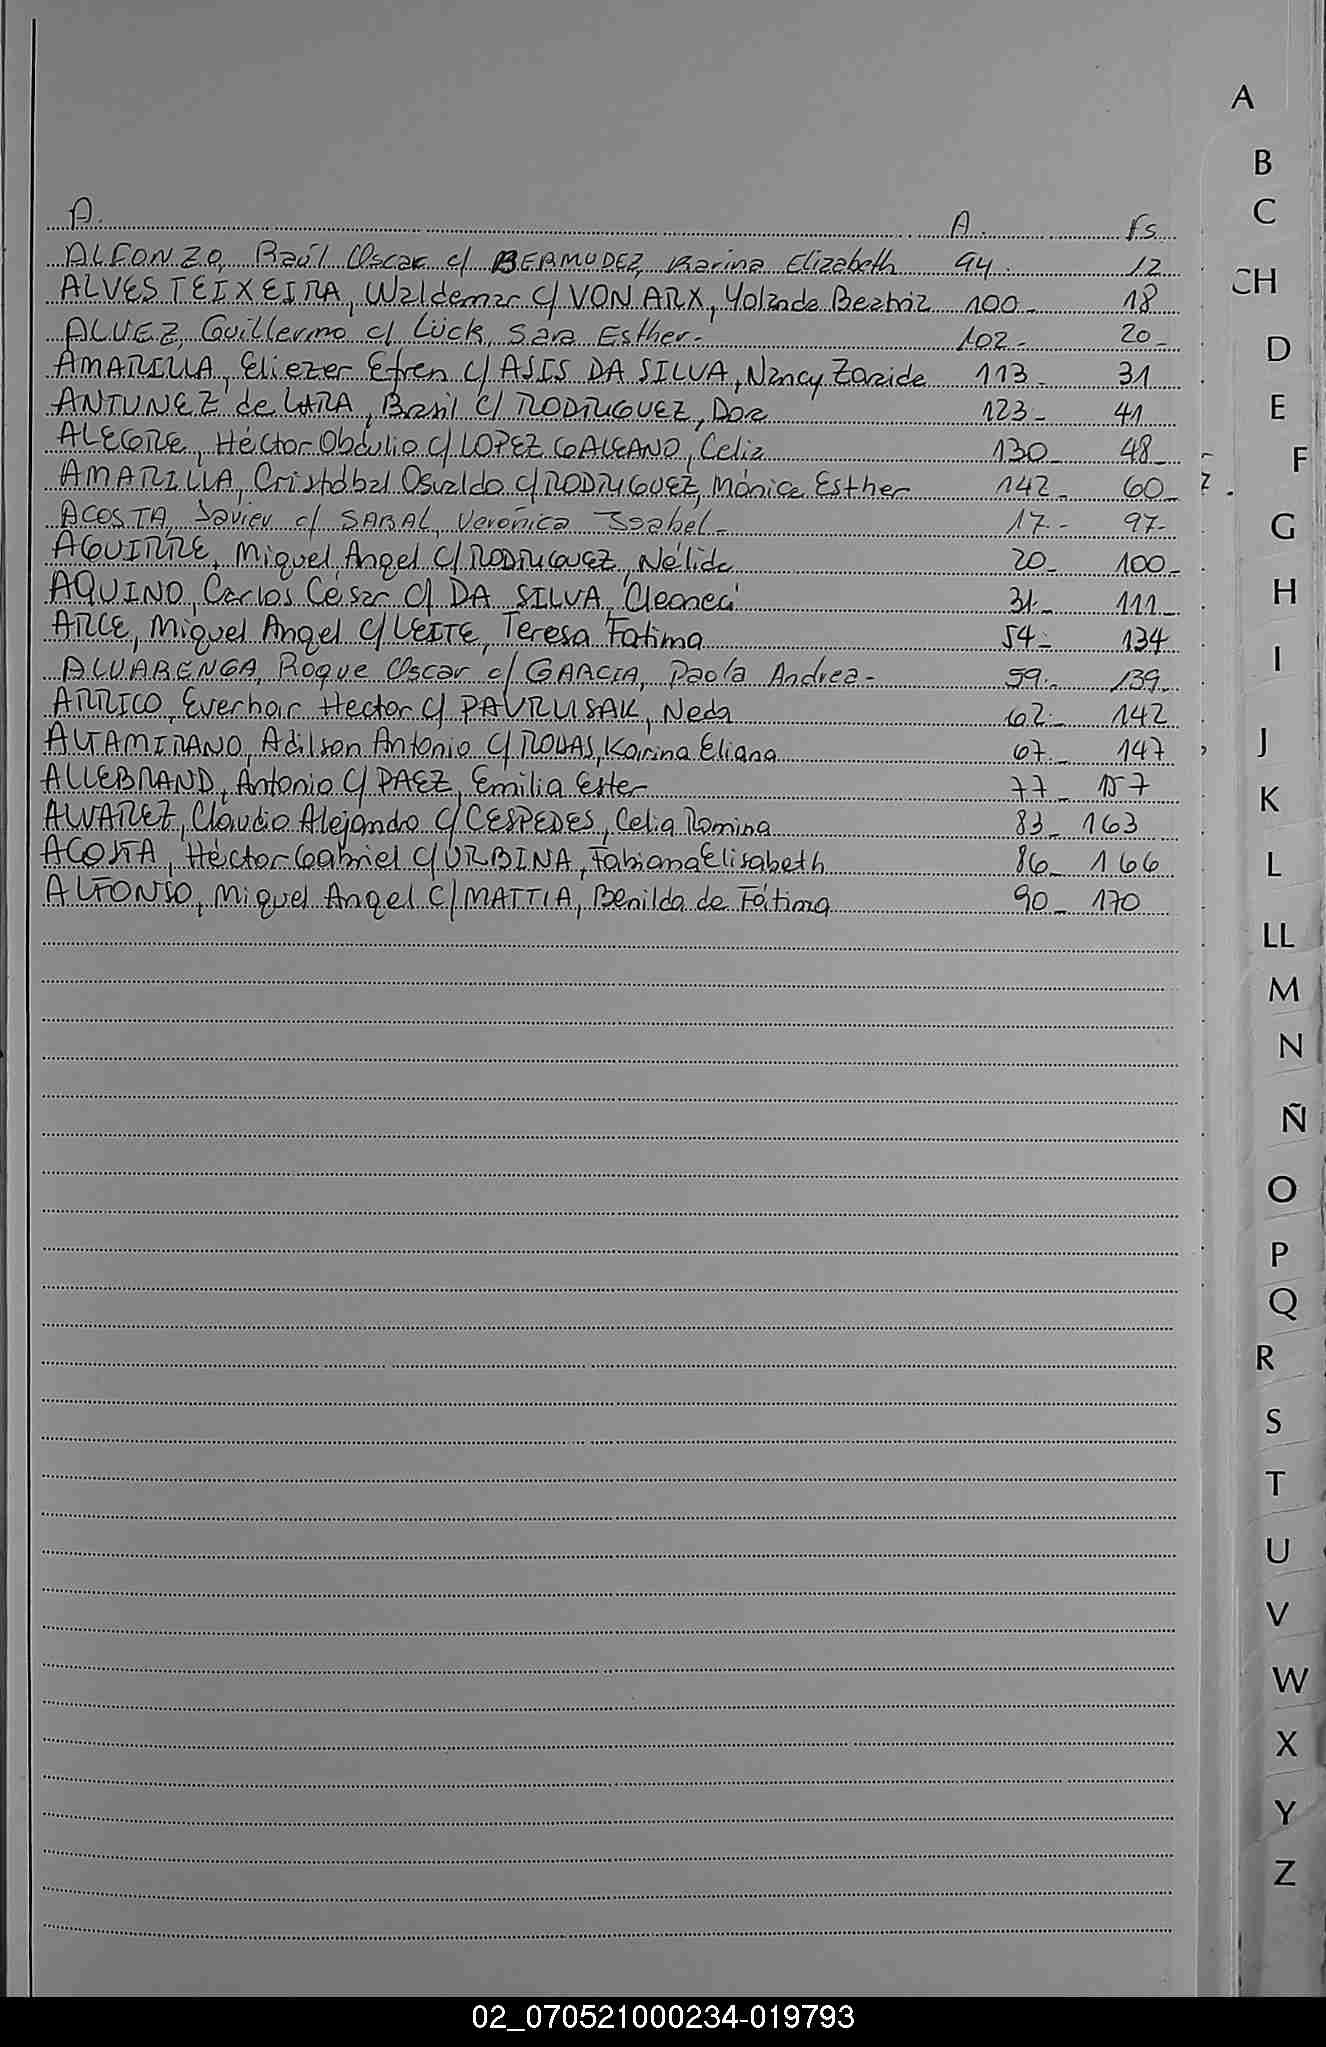 A. A. Fs.
ALFONZO, Raúl Oscar c/ BERMUDEZ, Karina Elizabeth 94. 12
ALVES TEIXEIRA, Waldemar c/ VON ARX, Yolande Beatriz 100- 18
ALVEZ, Guillermo c/ Lück, Sara Esther- 102- 20-
AMARILLA, Eliezer Efren c/ ASIS DA SILVA, Nancy Zoraide 113- 31
ANTUNEZ de LARA, Brasil c/ RODRIGUEZ, Dora 123- 41
ALEGRE, Héctor Obdulio c/ LOPEZ GALEANO, Celia 130- 48-
AMARILLA, Cristóbal Osvaldo c/ RODRIGUEZ, Mónica Esther 142- 60-
ACOSTA, Javier c/ SABAL, Verónica Isabel- 17- 97-
AGUIRRE, Miguel Angel c/ RODRIGUEZ, Nélida 20- 100-
AQUINO, Carlos César c/ DA SILVA, Cleoneci 31- 111-
ARCE, Miguel Angel c/ LEITE, Teresa Fatima 54- 134
ALVARENGA, Roque Oscar c/ GARCIA, Paola Andrea- 59- 139-
ARRICO, Everhar Hector c/ PAVRLISAK, Neda 62- 142
ALTAMIRANO, Adilson Antonio c/ RODAS, Karina Eliana 67- 147
ALLEBRAND, Antonio c/ PAEZ, Emilia Ester 77- 157
ALVAREZ, Claudio Alejandro c/ CESPEDES, Celia Romina 83- 163
ACOSTA, Héctor Gabriel c/ URBINA, Fabiana Elisabeth 86- 166
ALFONSO, Miguel Angel c/ MATTIA, Benilda de Fátima 90- 170
A
B
C
CH
D
E
F
G
H
I
J
K
L
LL
M
N
Ñ
O
P
Q
R
S
T
U
V
W
X
Y
Z
02_070521000234-019793